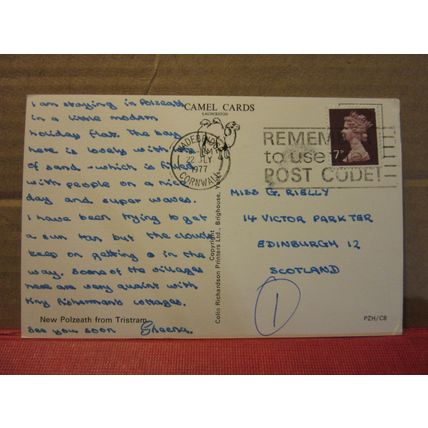 CAMEL CARDS
LAUNCESTON
I am staying in Polzeath
in a little modern
holiday flat. The bay
here is lovely with lots
of sand - which is filled
with people on a nice
day and super waves.
I have been trying to get
a sun tan but the clouds
keep on getting in the
way. Some of the villages
here are very quaint with
tiny fisherman's cottages.
New Polzeath from Tristram
See you soon Sheena.
WADEBRIDGE
22 JLY
1977
CORNWALL
REMEMBER
to use
POST CODE!
7P
Copyright
Colin Richardson Printers Ltd., Brighouse,
MISS G. RIELLY
14 VICTOR PARK TER
EDINBURGH 12
SCOTLAND
1
PZH/C8